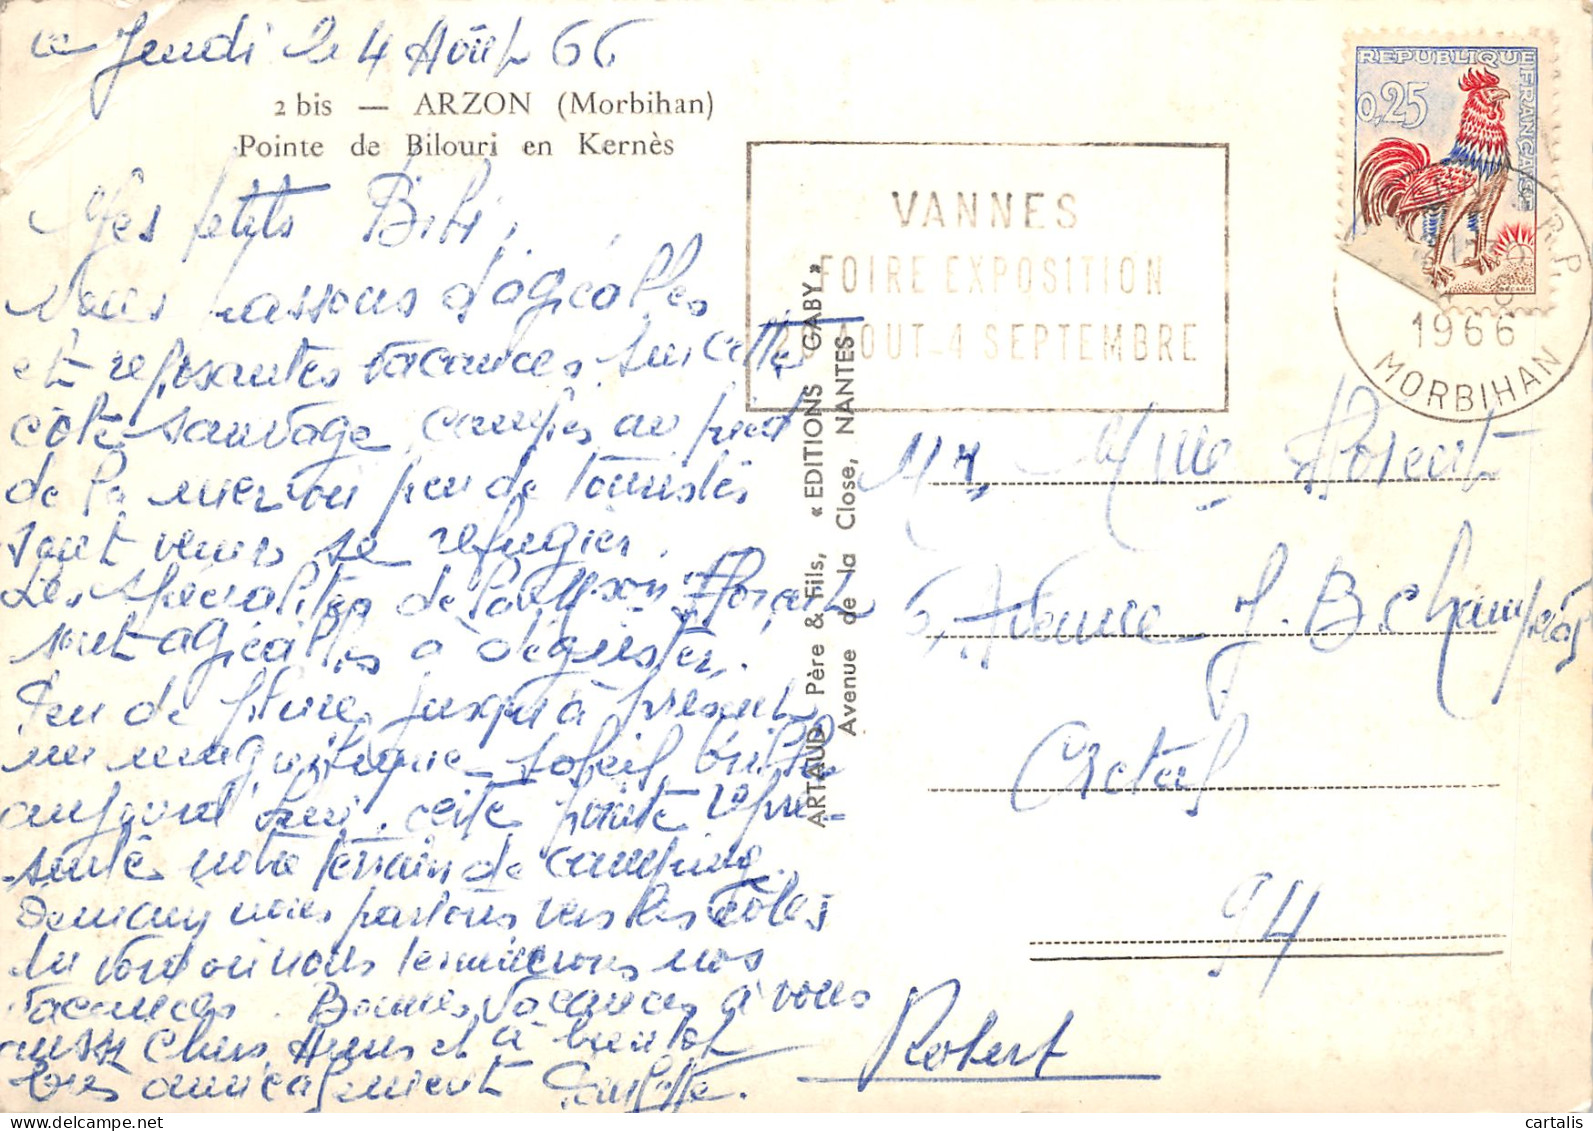 ce Jeudi le 4 Août 66
2 bis — ARZON (Morbihan)
Pointe de Bilouri en Kernès
Mes petits Bibi,
Nous passons d'agréables
et reposantes vacances sur cette
côte sauvage, campés au pied
de la mer où peu de touristes
sont venus se réfugier.
Les spécialités de la Florent
sont agréables à déguster.
Peu de pluie, jusqu'à présent
un magnifique soleil brille
aujourd'hui. cette pointe repré-
sente notre terrain de camping.
Demain nous partons vers les côtes
du nord où nous terminerons nos
vacances. Bonnes vacances à vous
aussi Chers Amis et à bientôt
bien amicalement Paulette.
Robert
ARTAUD Père & Fils, « EDITIONS GABY »
Avenue de la Close, NANTES
VANNES
FOIRE EXPOSITION
AOUT-4 SEPTEMBRE
REPUBLIQUE FRANÇAISE
0,25
DECARIS
R.P
1966
MORBIHAN
Mr, Mme Florent
6, Avenue J. B. Champeval
Creteil
94
cartalis
www.delcampe.net